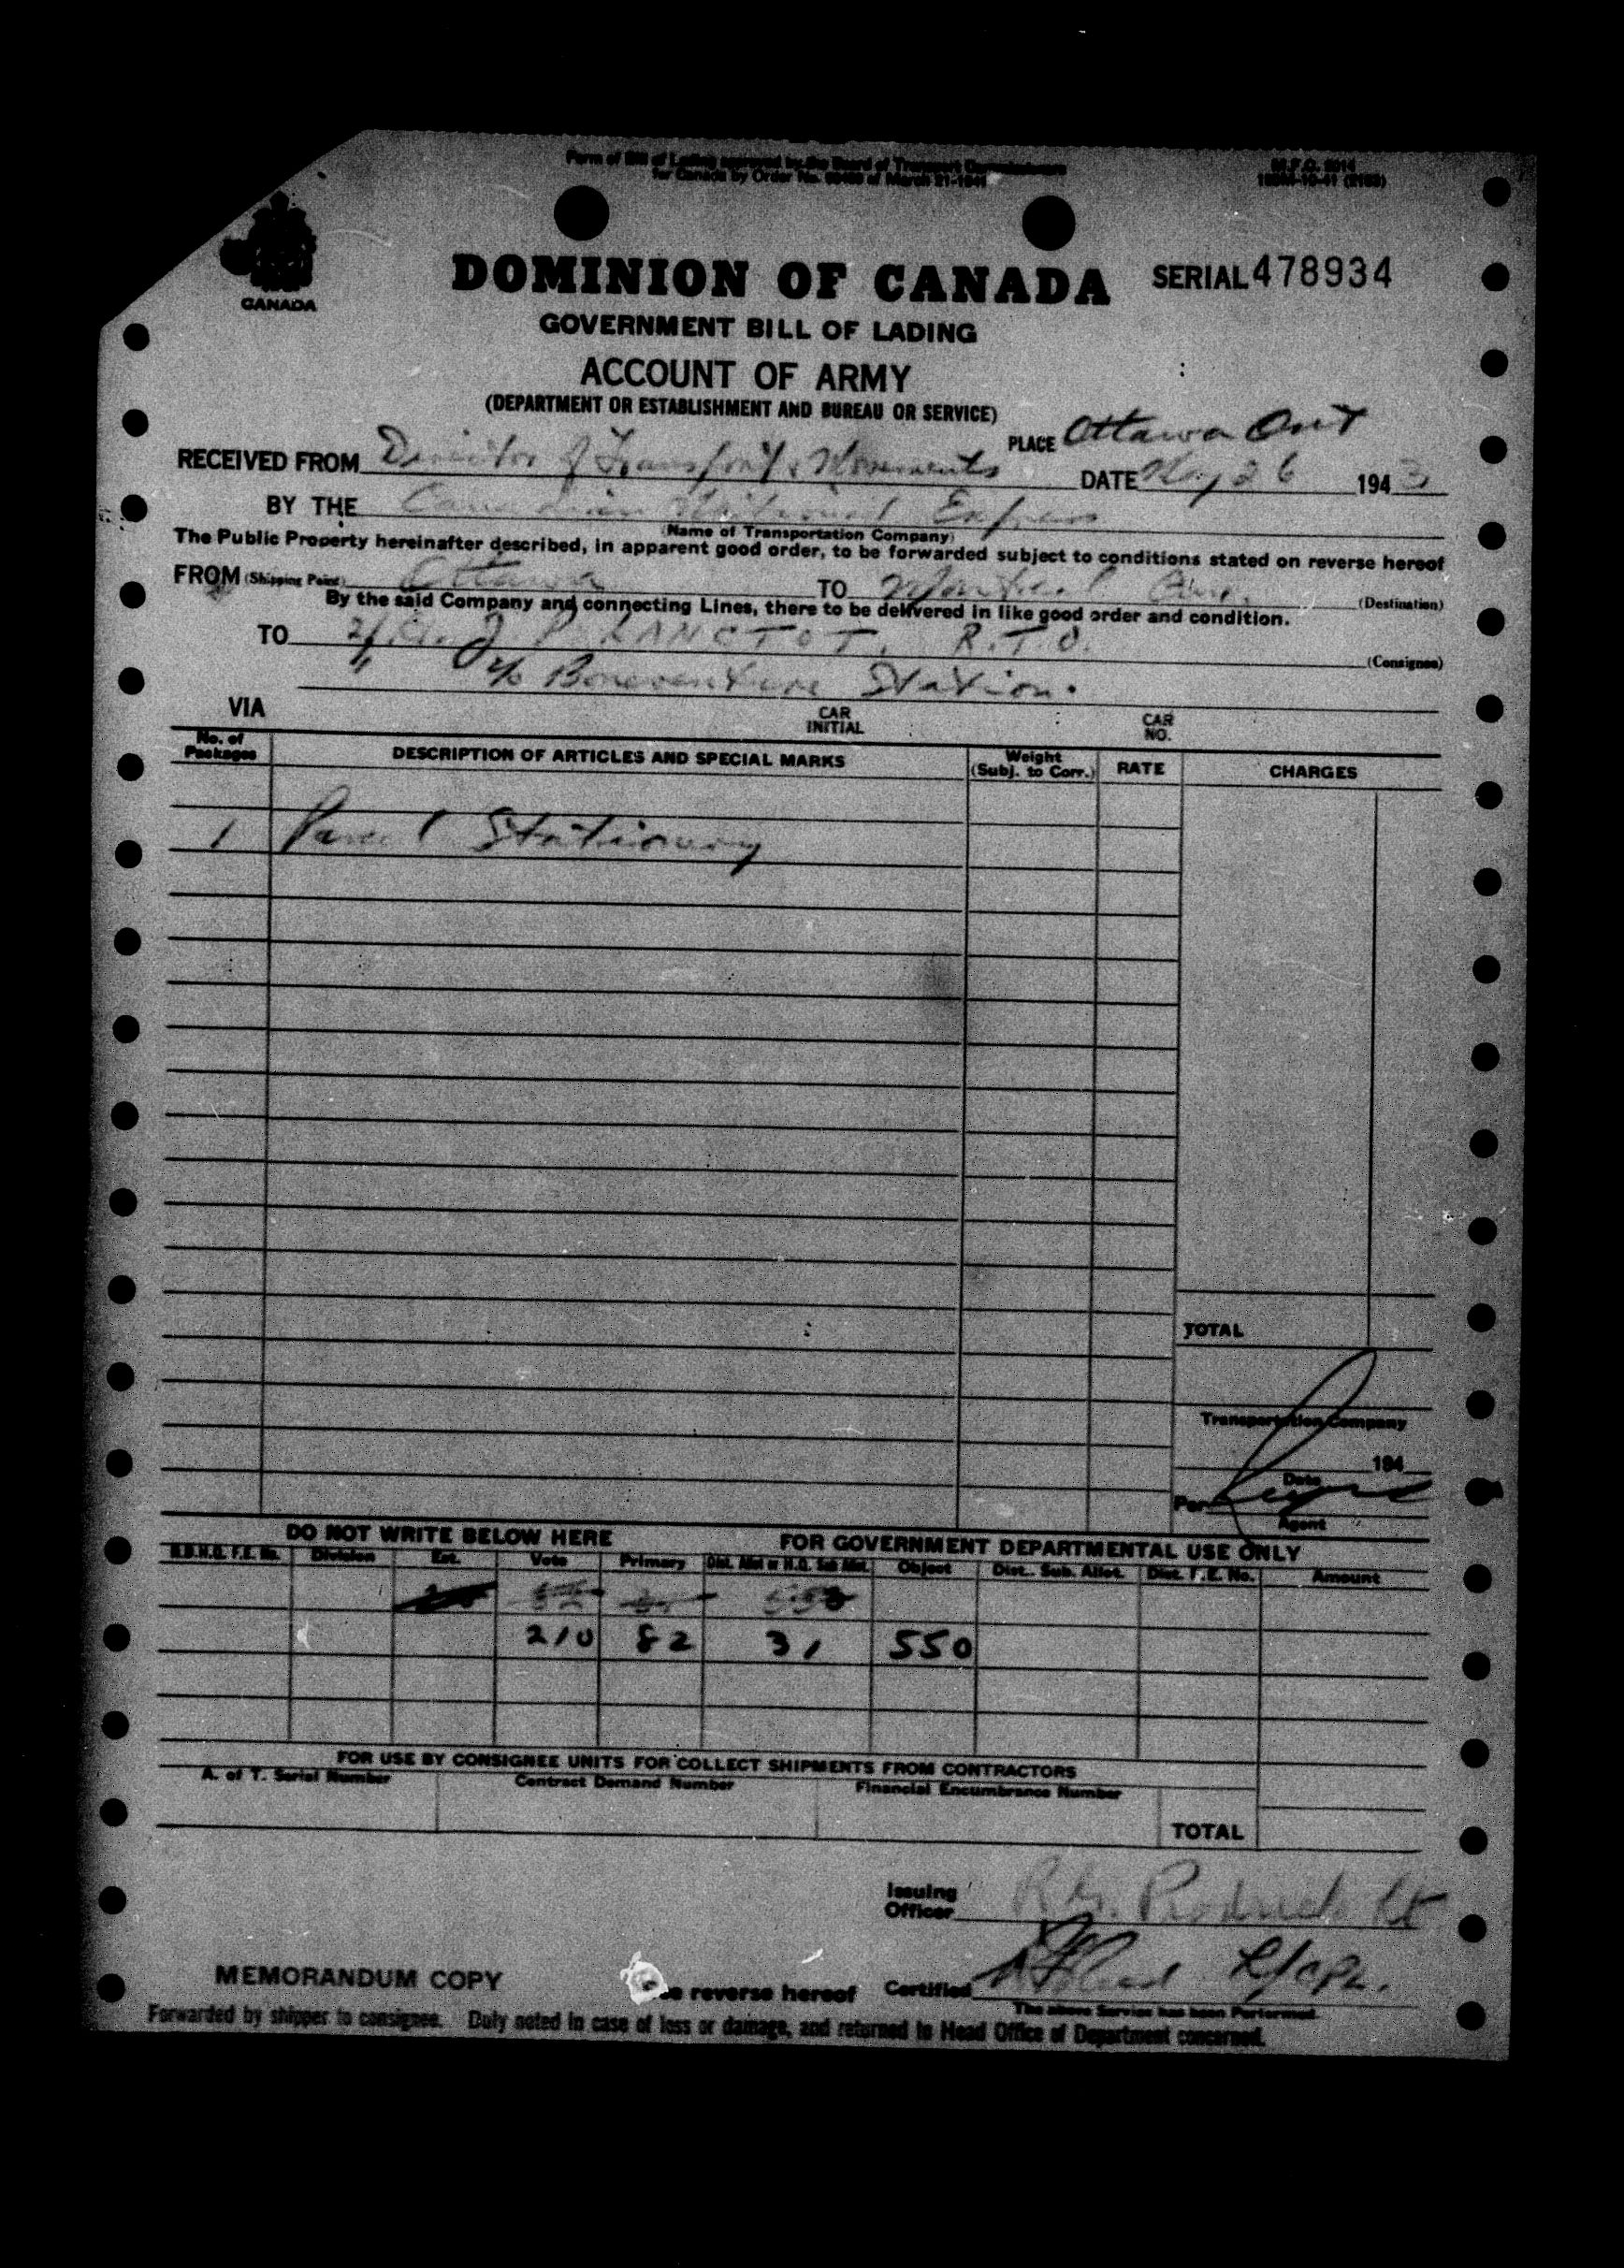 Form of Bill of Lading approved by the Board of Transport Commissioners
for Canada by Order No. of March 21-1941
CANADA
DOMINION OF CANADA
SERIAL 478934
GOVERNMENT BILL OF LADING
ACCOUNT OF ARMY
(DEPARTMENT OR ESTABLISHMENT AND BUREAU OR SERVICE)
PLACE Ottawa Ont
RECEIVED FROM Director of Transport & Movements
DATE May 26 1943
BY THE Canadian National Express
(Name of Transportation Company)
The Public Property hereinafter described, in apparent good order, to be forwarded subject to conditions stated on reverse hereof
FROM (Shipping Point) Ottawa TO Montreal Que. (Destination)
By the said Company and connecting Lines, there to be delivered in like good order and condition.
TO J. P. LANCTOT, R.T.O. (Consignee)
c/o Bonaventure Station.
VIA CAR INITIAL CAR NO.
No. of Packages DESCRIPTION OF ARTICLES AND SPECIAL MARKS Weight (Subj. to Corr.) RATE CHARGES
1 Parcel Stationery
TOTAL
Transportation Company
194
Date
Per
Agent
DO NOT WRITE BELOW HERE FOR GOVERNMENT DEPARTMENTAL USE ONLY
N.D.H.Q. F.E. No. Division Est. Vote Primary Dist. Allot or H.Q. Sub Allot. Object Dist. Sub. Allot. Dist. F.E. No. Amount
210 82 31 550
FOR USE BY CONSIGNEE UNITS FOR COLLECT SHIPMENTS FROM CONTRACTORS
A. of T. Serial Number Contract Demand Number Financial Encumbrance Number
TOTAL
Issuing Officer Lt
MEMORANDUM COPY reverse hereof Certified
The above Service has been Performed
Forwarded by shipper to consignee. Duly noted in case of loss or damage, and returned to Head Office of Department concerned.